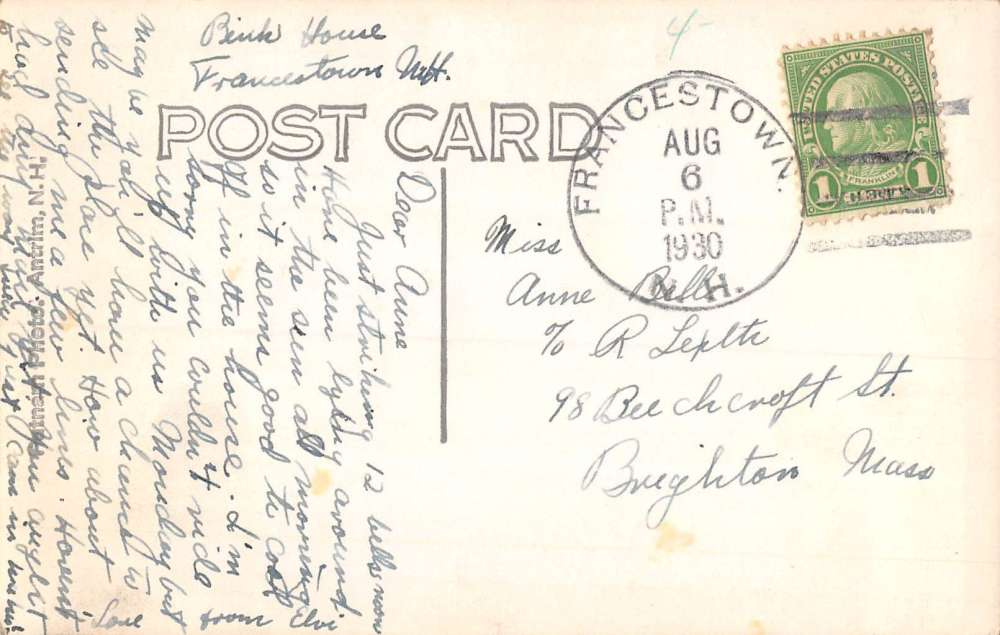 House
Francestown N.H.
POST CARD
4
FRANCESTOWN.
AUG
6
P.M.
1930
N.H.
UNITED STATES POSTAGE
FRANKLIN
1 CENT 1
Miss
Anne
c/o R
98 Beechcroft St.
Brighton Mass
Dear Anne
Just striking 12 bells now
Have been lying around
in the sun all morning
so it seems good to cool
off in the house. I'm
sorry you couldn't ride
up with us Monday but
maybe you'll have a chance to
see the place yet. How about
sending me a few lines. Haven't
had any mail yet. You
to see the way
Love from Elvi
Photo. Antrim, N.H.